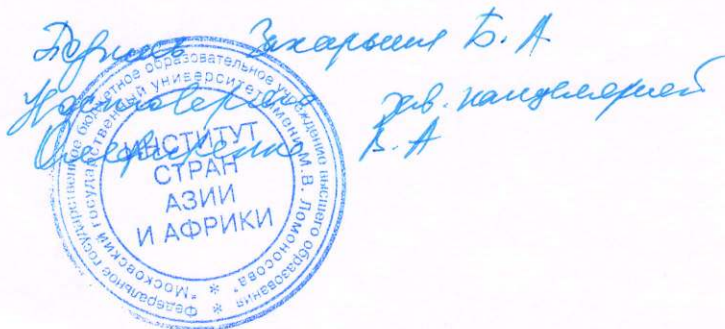 Подпись Захарьина Б. А
Удостоверяю зав. канцелярией
В. А
Федеральное государственное бюджетное образовательное учреждение высшего образования
"Московский государственный университет имени М.В. Ломоносова"
ИНСТИТУТ
СТРАН
АЗИИ
И АФРИКИ